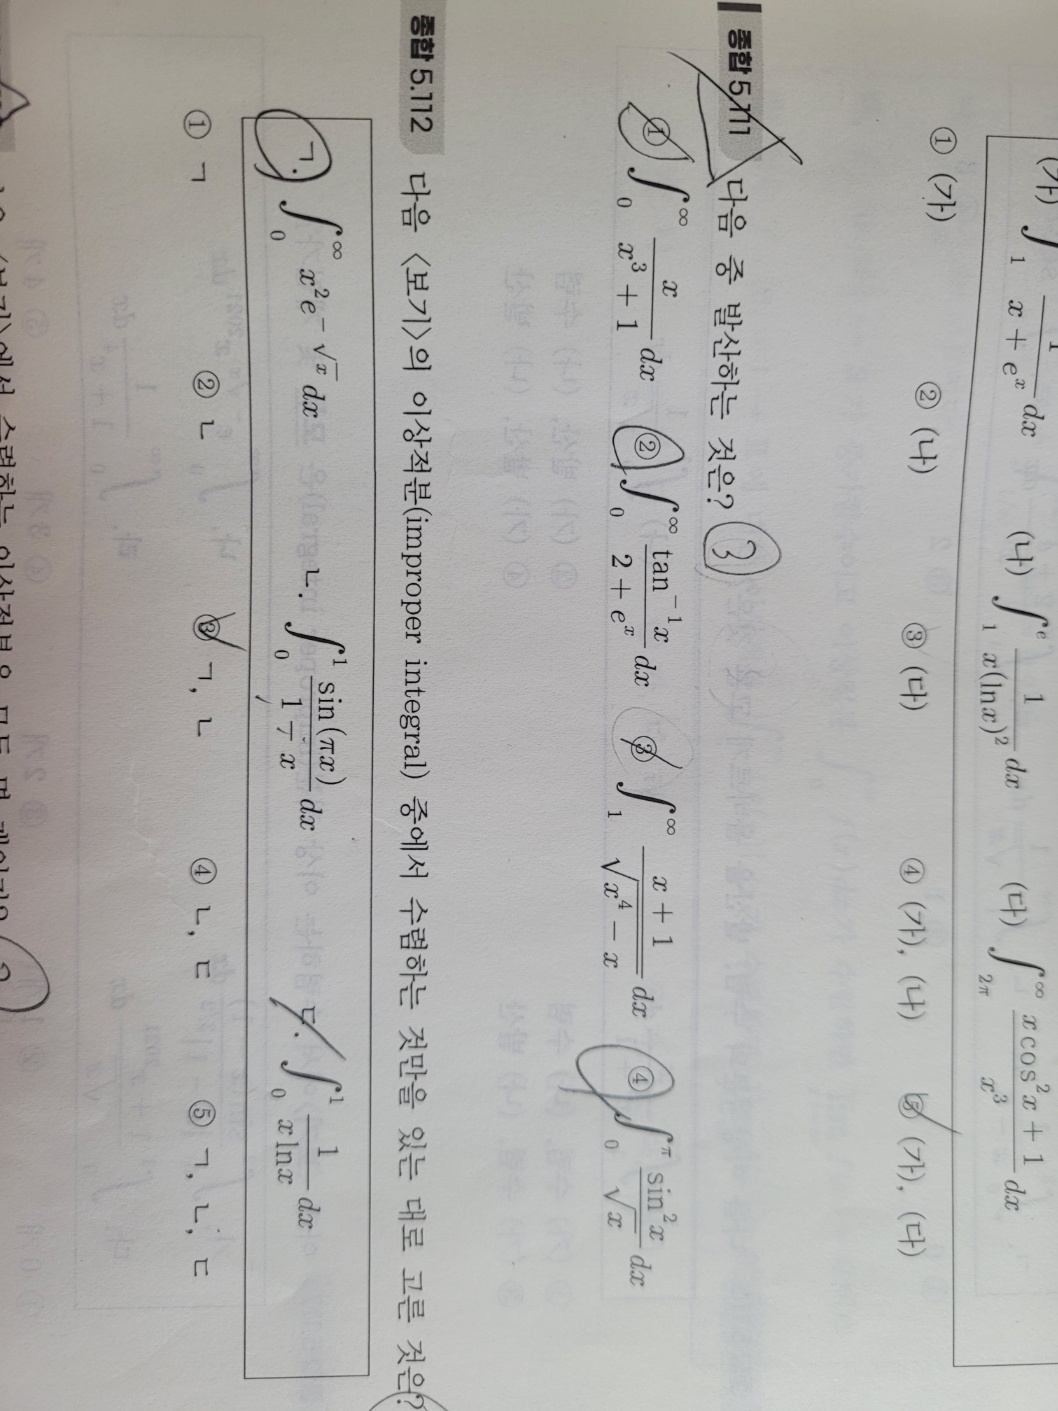 (가) ∫₁ 1/(x + eˣ) dx (나) ∫₁ᵉ 1/(x(ln x)²) dx (다) ∫_{2π}^∞ (x cos² x + 1)/x³ dx
① (가) ② (나) ③ (다) ④ (가), (나) ⑤ (가), (다)
종합 5.111 다음 중 발산하는 것은? 3
① ∫₀^∞ x/(x³ + 1) dx ② ∫₀^∞ tan⁻¹x/(2 + eˣ) dx ③ ∫₁^∞ (x + 1)/√(x⁴ − x) dx ④ ∫₀^π sin²x/√x dx
종합 5.112 다음 〈보기〉의 이상적분(improper integral) 중에서 수렴하는 것만을 있는 대로 고른 것은?
ㄱ. ∫₀^∞ x²e^{−√x} dx ㄴ. ∫₀¹ sin(πx)/(1 − x) dx ㄷ. ∫₀¹ 1/(x ln x) dx
① ㄱ ② ㄴ ③ ㄱ, ㄴ ④ ㄴ, ㄷ ⑤ ㄱ, ㄴ, ㄷ